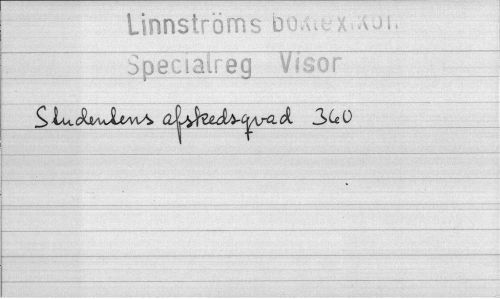 Linnströms boklexikon
Specialreg Visor
Studentens afskedsqvad 360